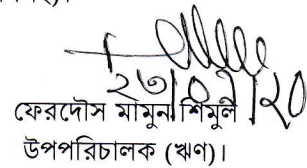 ২৩|০৭|২০
ফেরদৌস মামুন শিমুল
উপপরিচালক (ঋন)।